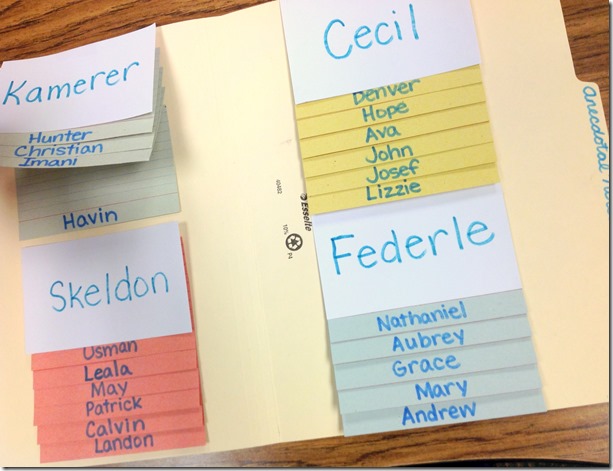 Kamerer
Hunter
Christian
Imani
Havin
Skeldon
Usman
Leala
May
Patrick
Calvin
Landon
Cecil
Denver
Hope
Ava
John
Josef
Lizzie
Federle
Nathaniel
Aubrey
Grace
Mary
Andrew
Esselte
10%
P4
Anecdotal